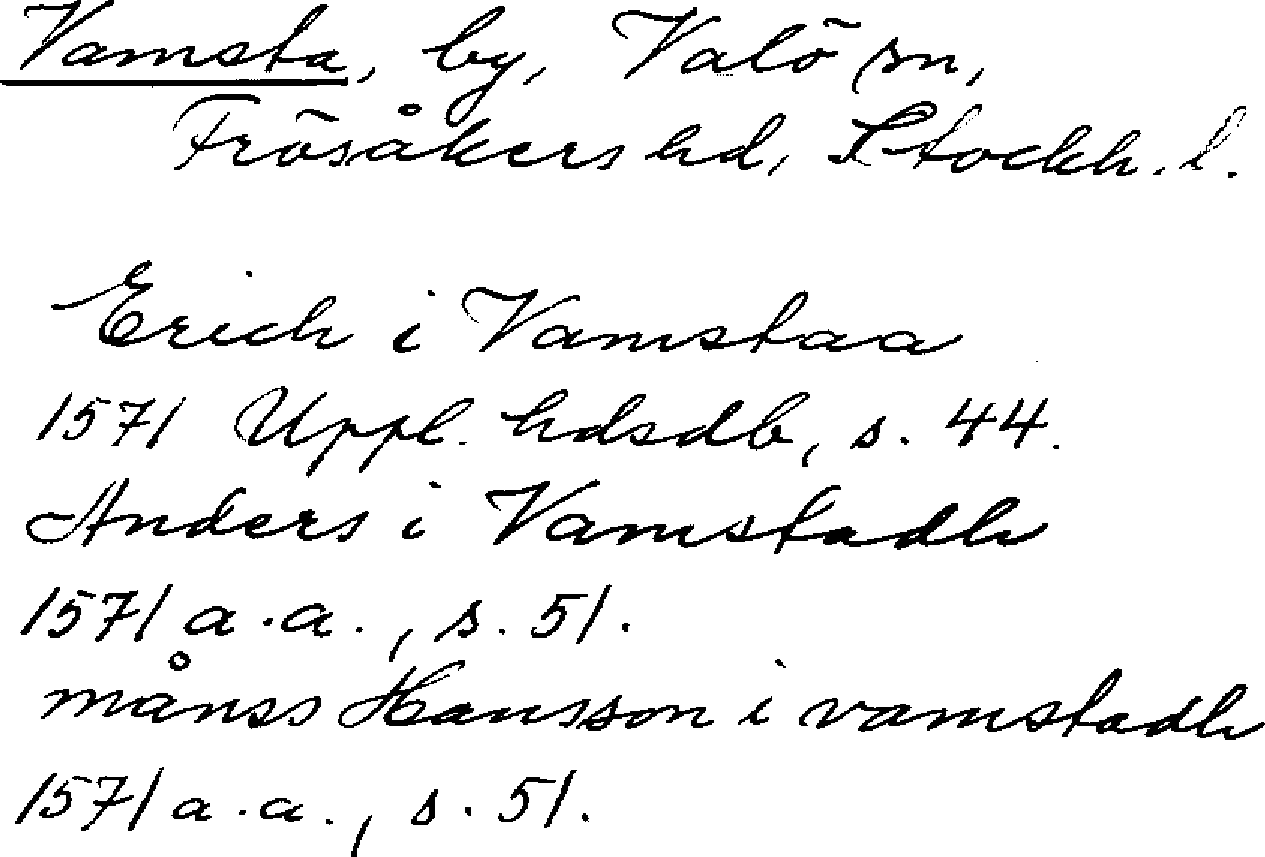 Vamsta, by, Valö sn,
Frösåkers hd, Stockh. l.
Erich i Vamstaa
1571 Uppl. hdsdb, s. 44.
Anders i Vamstadh
1571 a.a., s. 51.
månss Hansson i vamstadh
1571 a.a., s. 51.